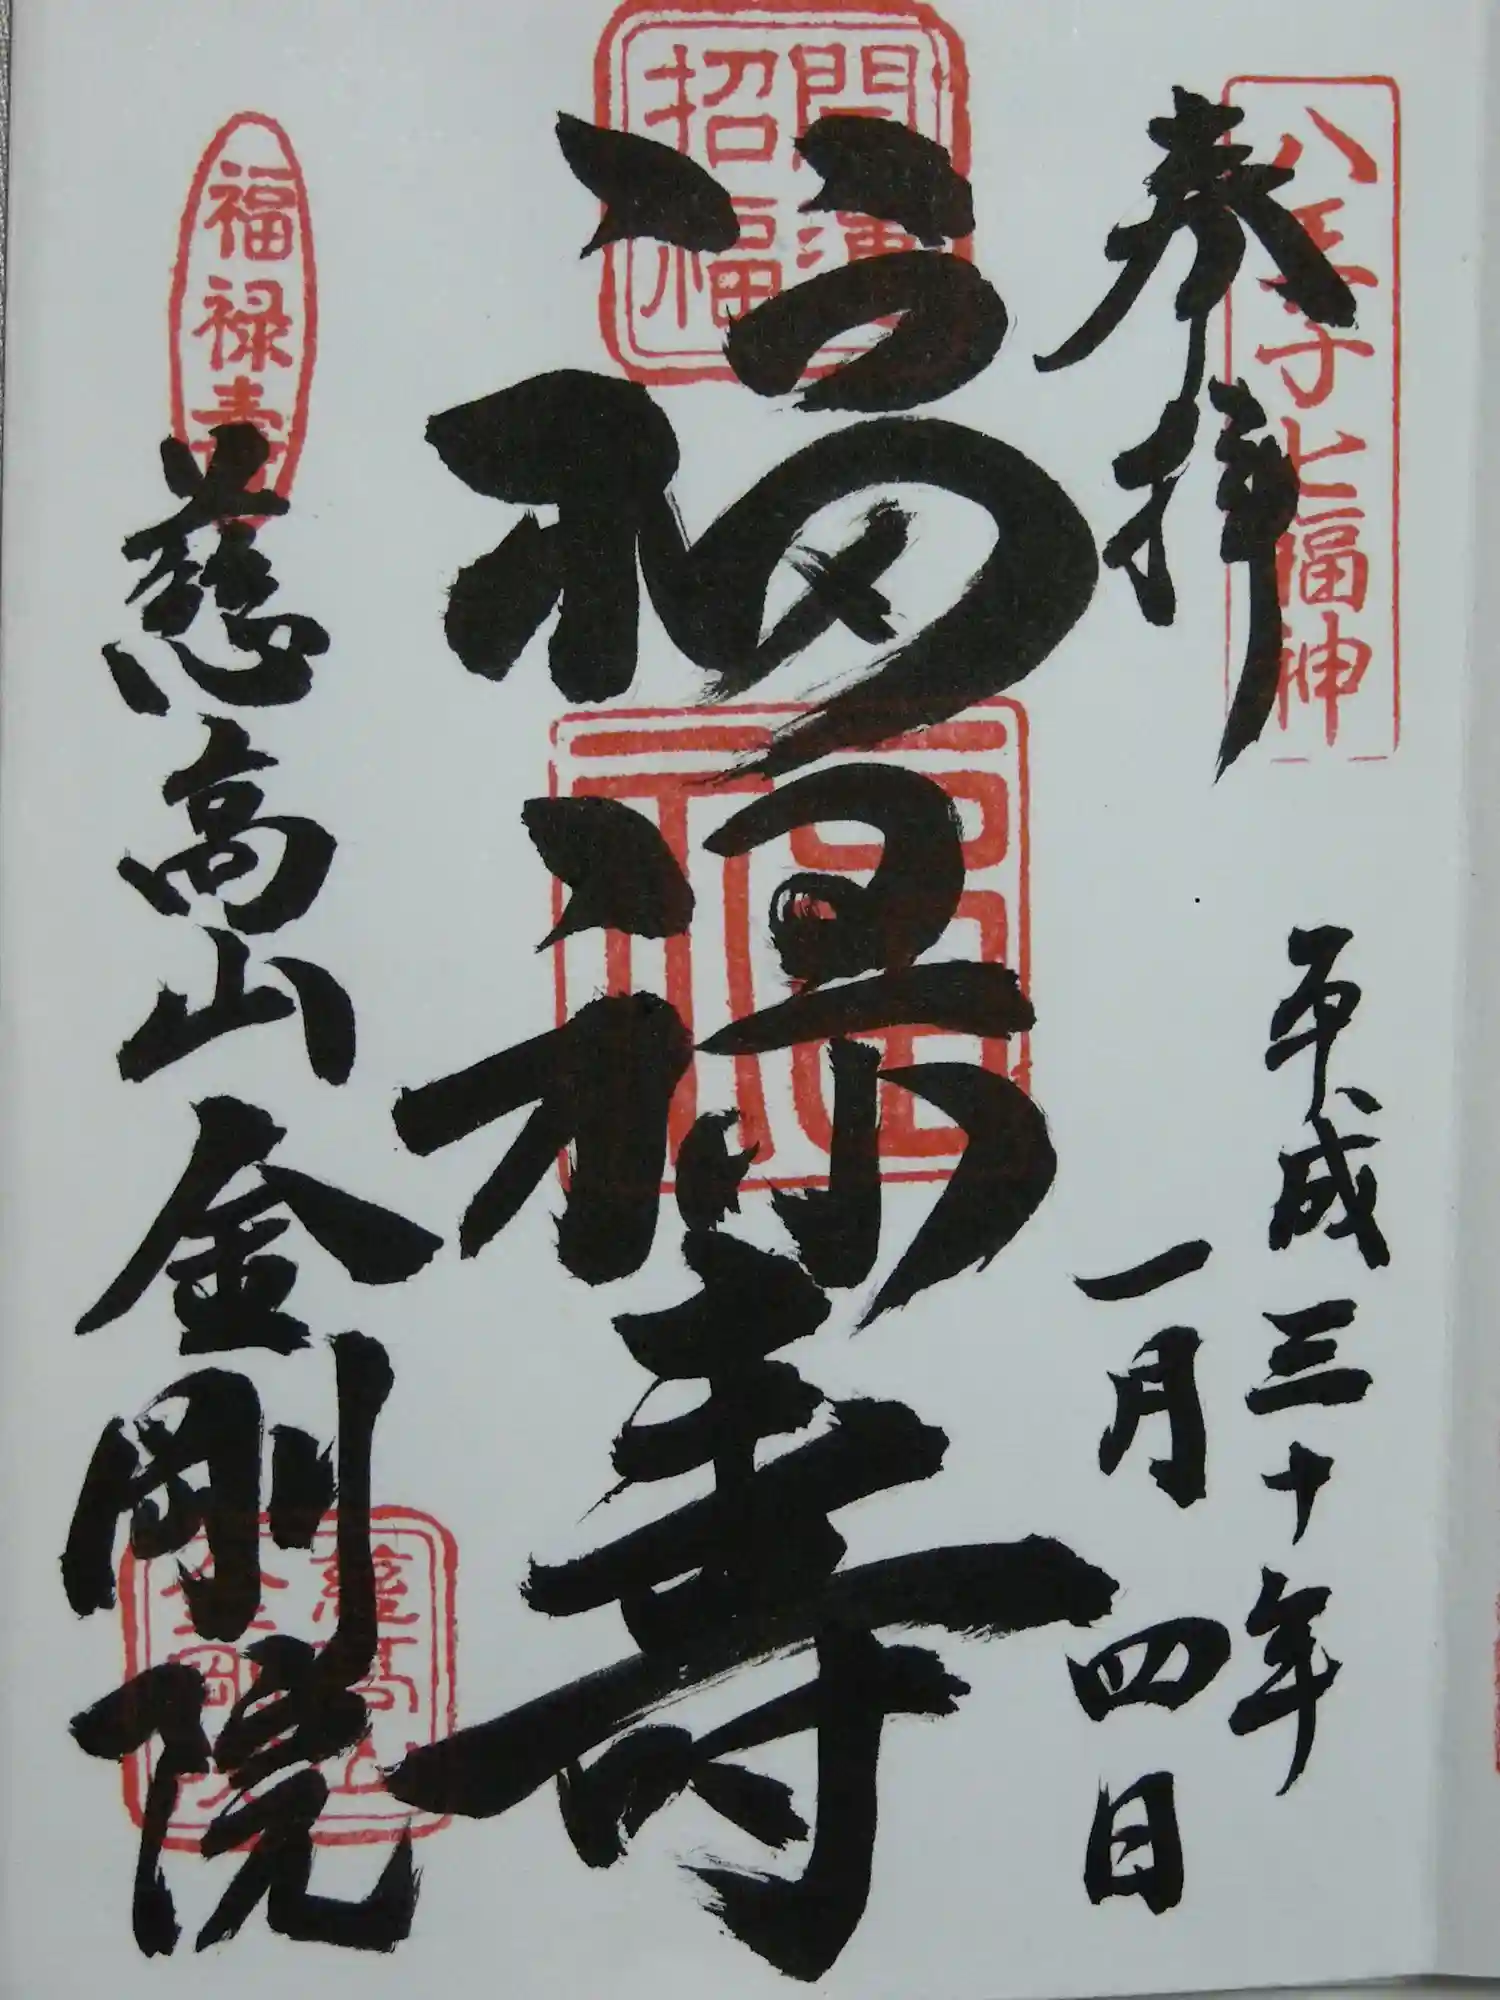 八王子七福神
奉拝
平成三十年
一月四日
開運
招福
福禄寿
福禄寿
慈高山金剛院
慈高山
金剛院